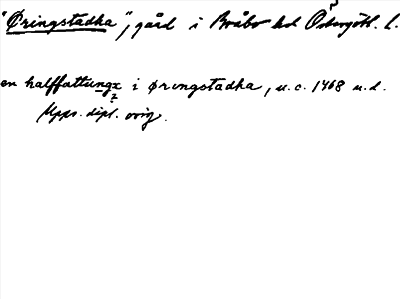 "Øringstadha", gård i Bråbo hd Östergötl. l.
en halffattungx i øringstadha, u.c. 1468 u.d.
?
Upps. dipl. orig.